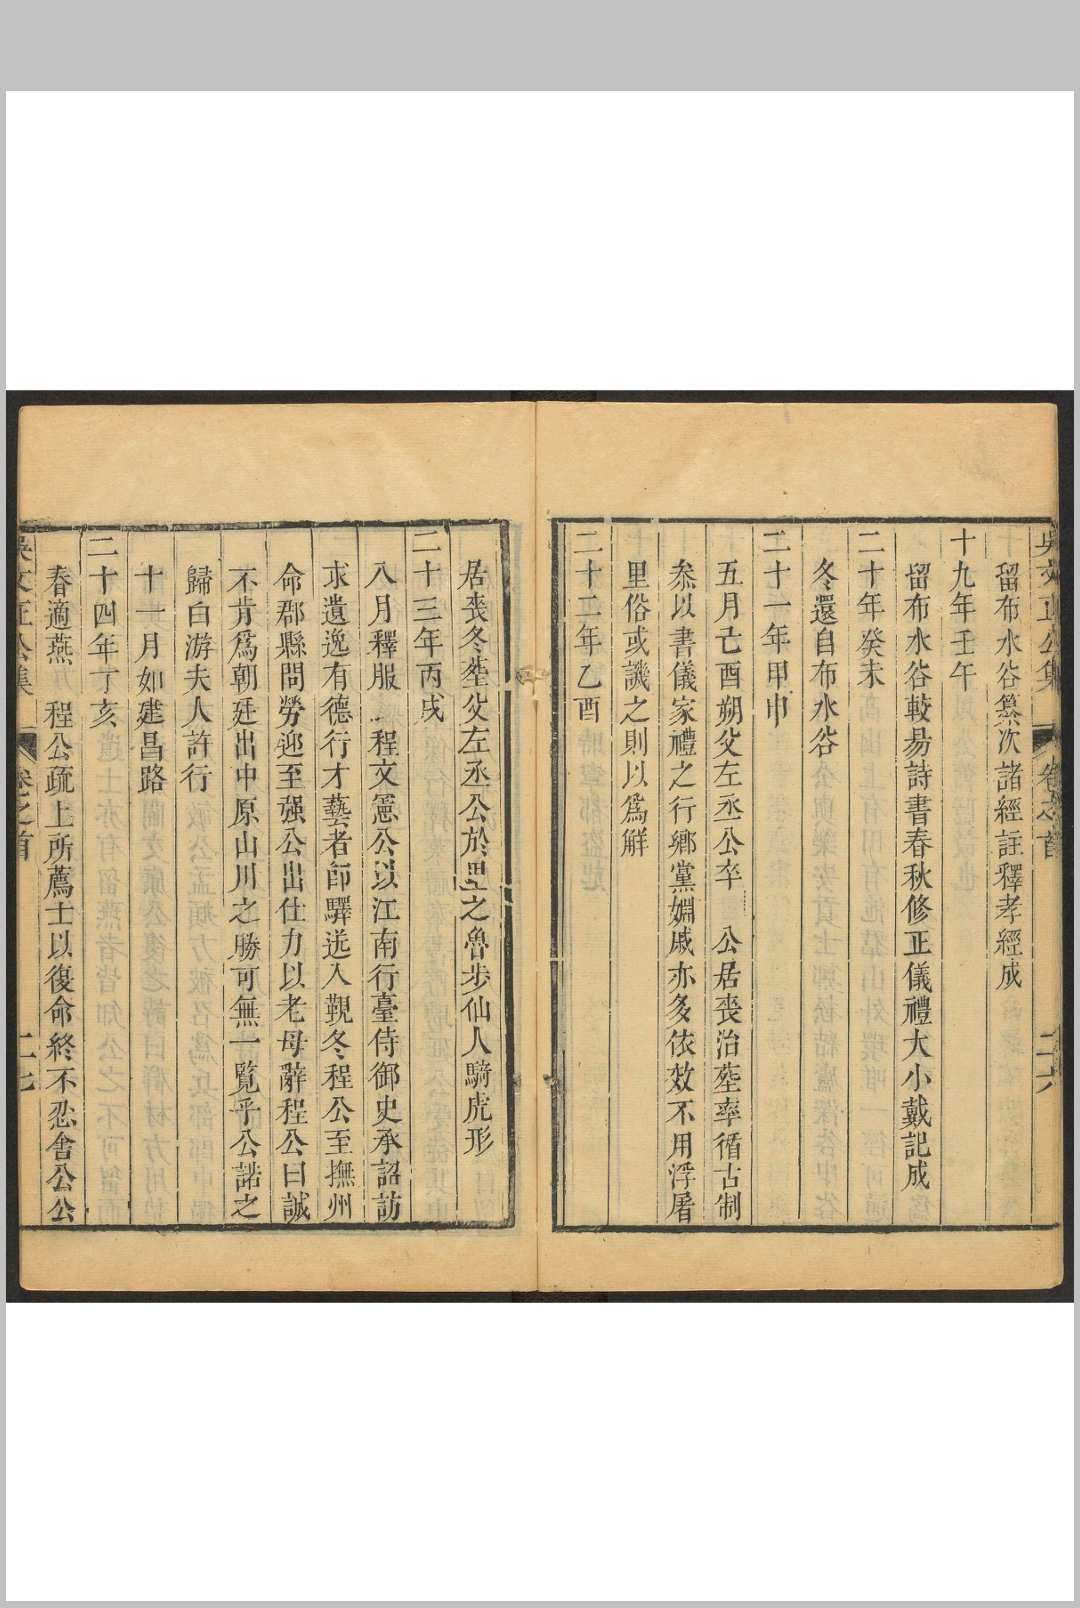 吳文正公集
卷之首
二十六
留布水谷纂次諸經註釋孝經成
十九年壬午
留布水谷較昜詩書春秋修正儀禮大小戴記成
二十年癸未
冬還自布水谷
二十一年甲申
五月己酉朔父左丞公卒 公居喪治塟率循古制
叅以書儀家禮之行鄉黨婣戚亦多依效不用浮屠
里俗或譏之則以爲解
二十二年乙酉
居喪冬塟父左丞公於里之魯步仙人騎虎形
二十三年丙戌
八月釋服 程文憲公以江南行臺侍御史承詔訪
求遺逸有德行才藝者卽驛送入覲冬程公至撫州
命郡縣問勞迎至强公出仕力以老母辭程公曰誠
不肯爲朝廷出中原山川之勝可無一覽乎公諾之
歸白游夫人許行
十一月如建昌路
二十四年丁亥
春適燕 程公疏上所薦士以復命終不忍舍公公
吳文正公集
卷之首
二十七